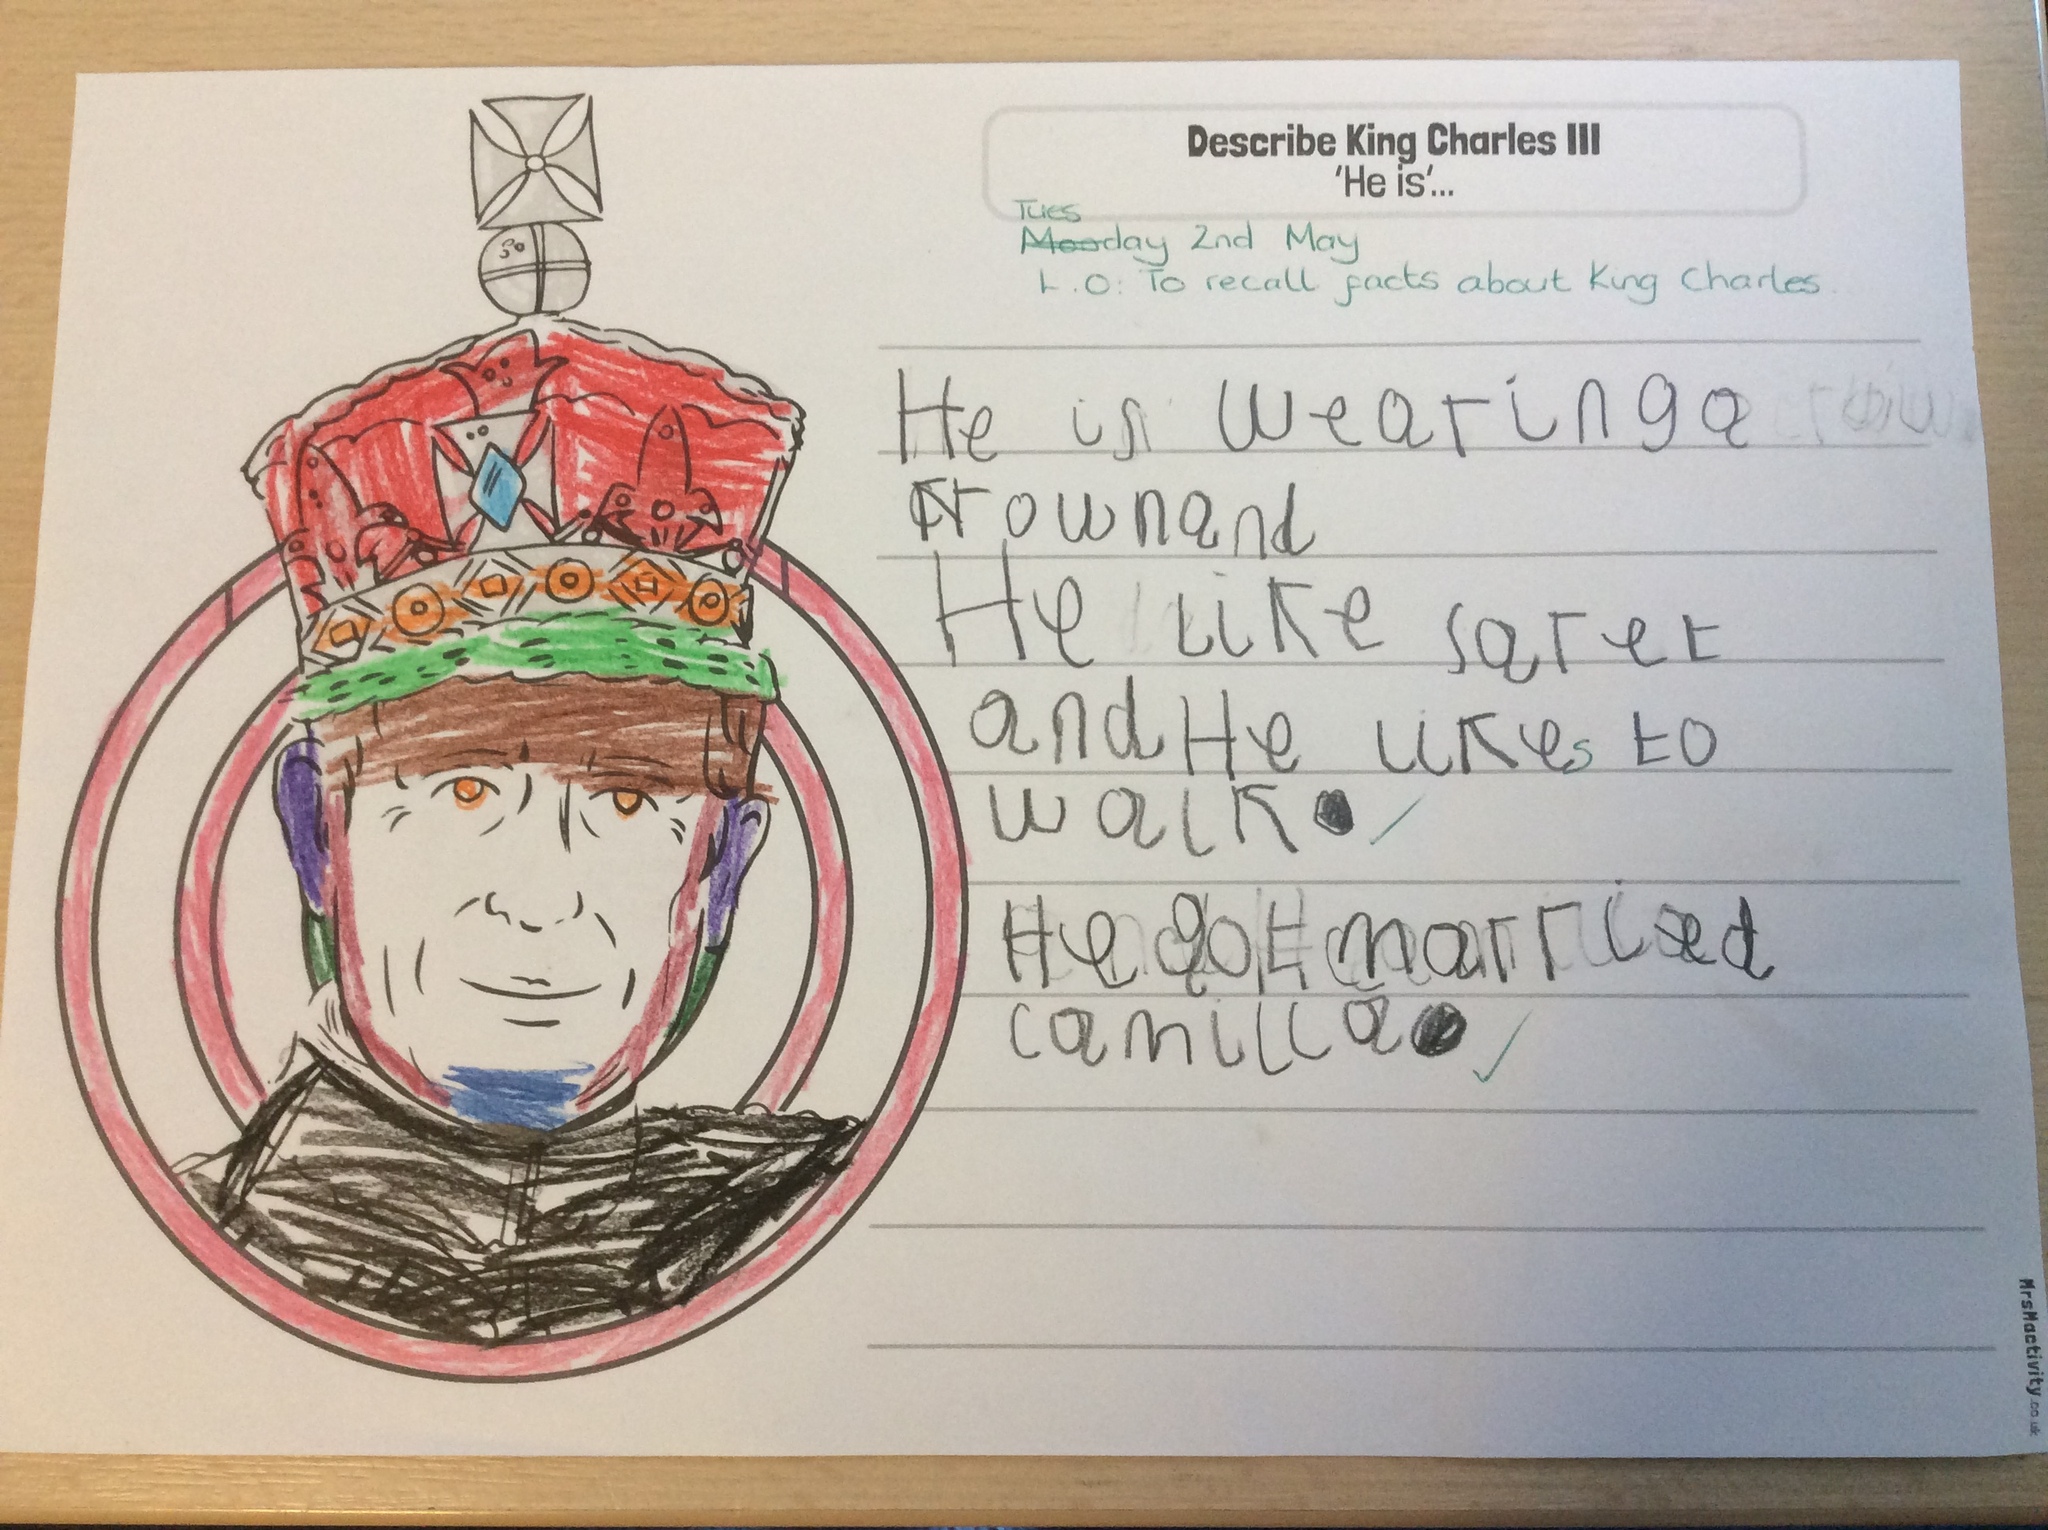 Describe King Charles III
'He is'...
Tues
Monday 2nd May
L.O: To recall facts about King Charles.
He is wearing a
krown and
He like sqret
and He likes to
walk.
He got marrised
camilla.
MrsMactivity.co.uk